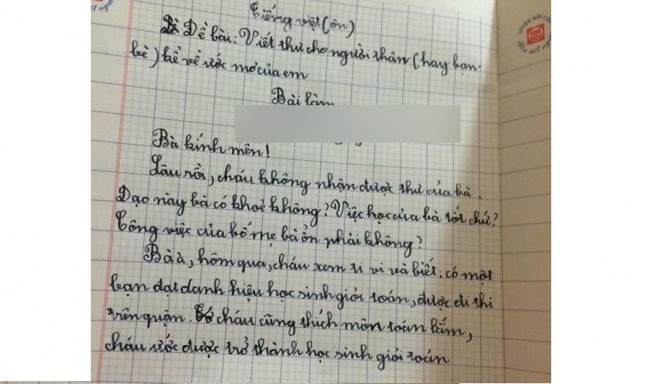 Tiếng việt (ôn)
Đề bài: Viết thư cho người thân (hay bạn
bè) kể về ước mơ của em
Bài làm
Bà kính mên!
Lâu rồi, cháu không nhận được thư của bà.
Dạo này bà có khoẻ không? Việc học của bà tốt chứ?
Công việc của bố mẹ bà ổn phải không?
Bà à, hôm qua, cháu xem ti vi và biết, có một
bạn đạt danh hiệu học sinh giỏi toán, được đi thi
trên quận. cháu cũng thích môn toán lắm,
cháu ước được trở thành học sinh giỏi toán